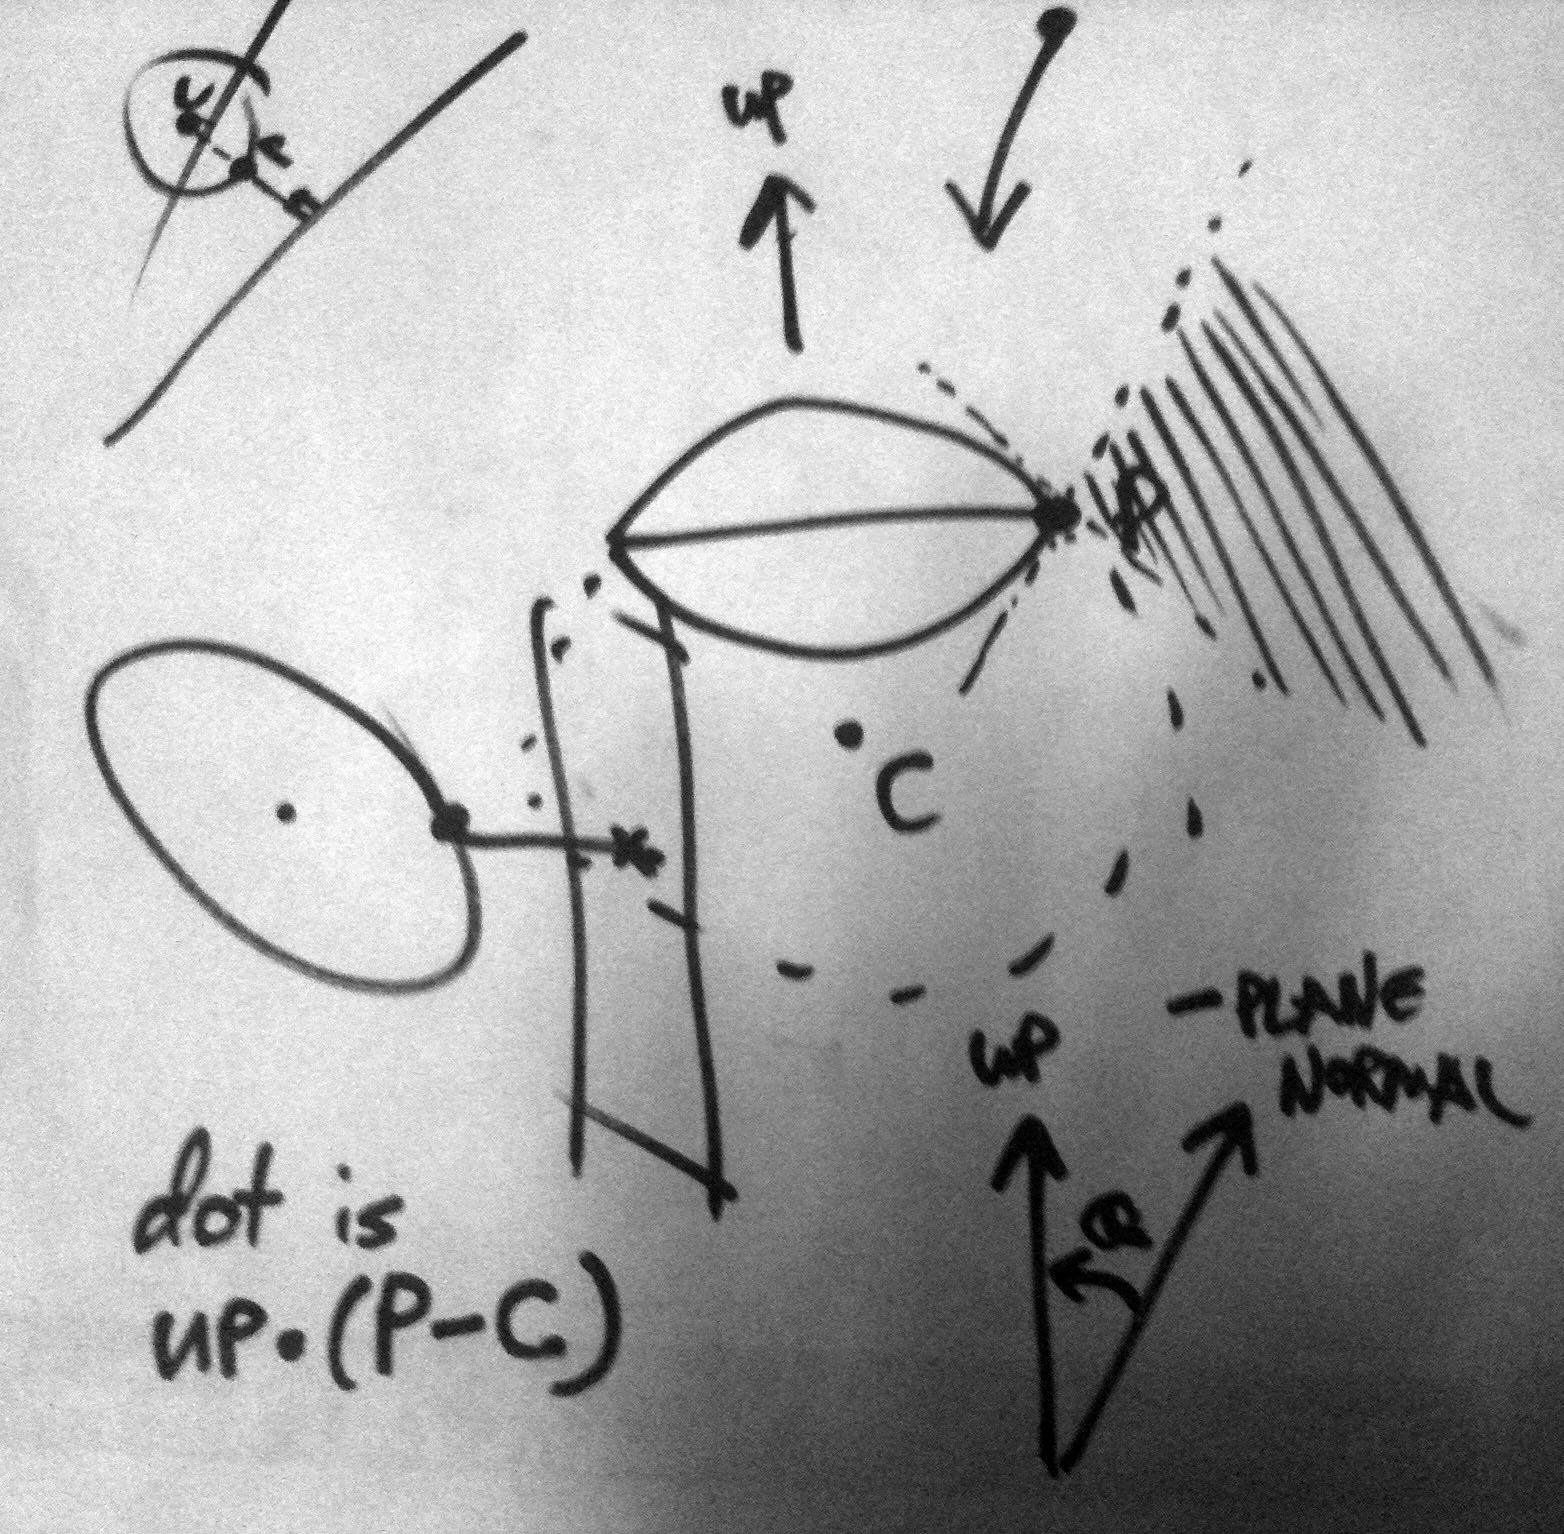 UP
P
C
- PLANE
NORMAL
UP
dot is
UP·(P-C)